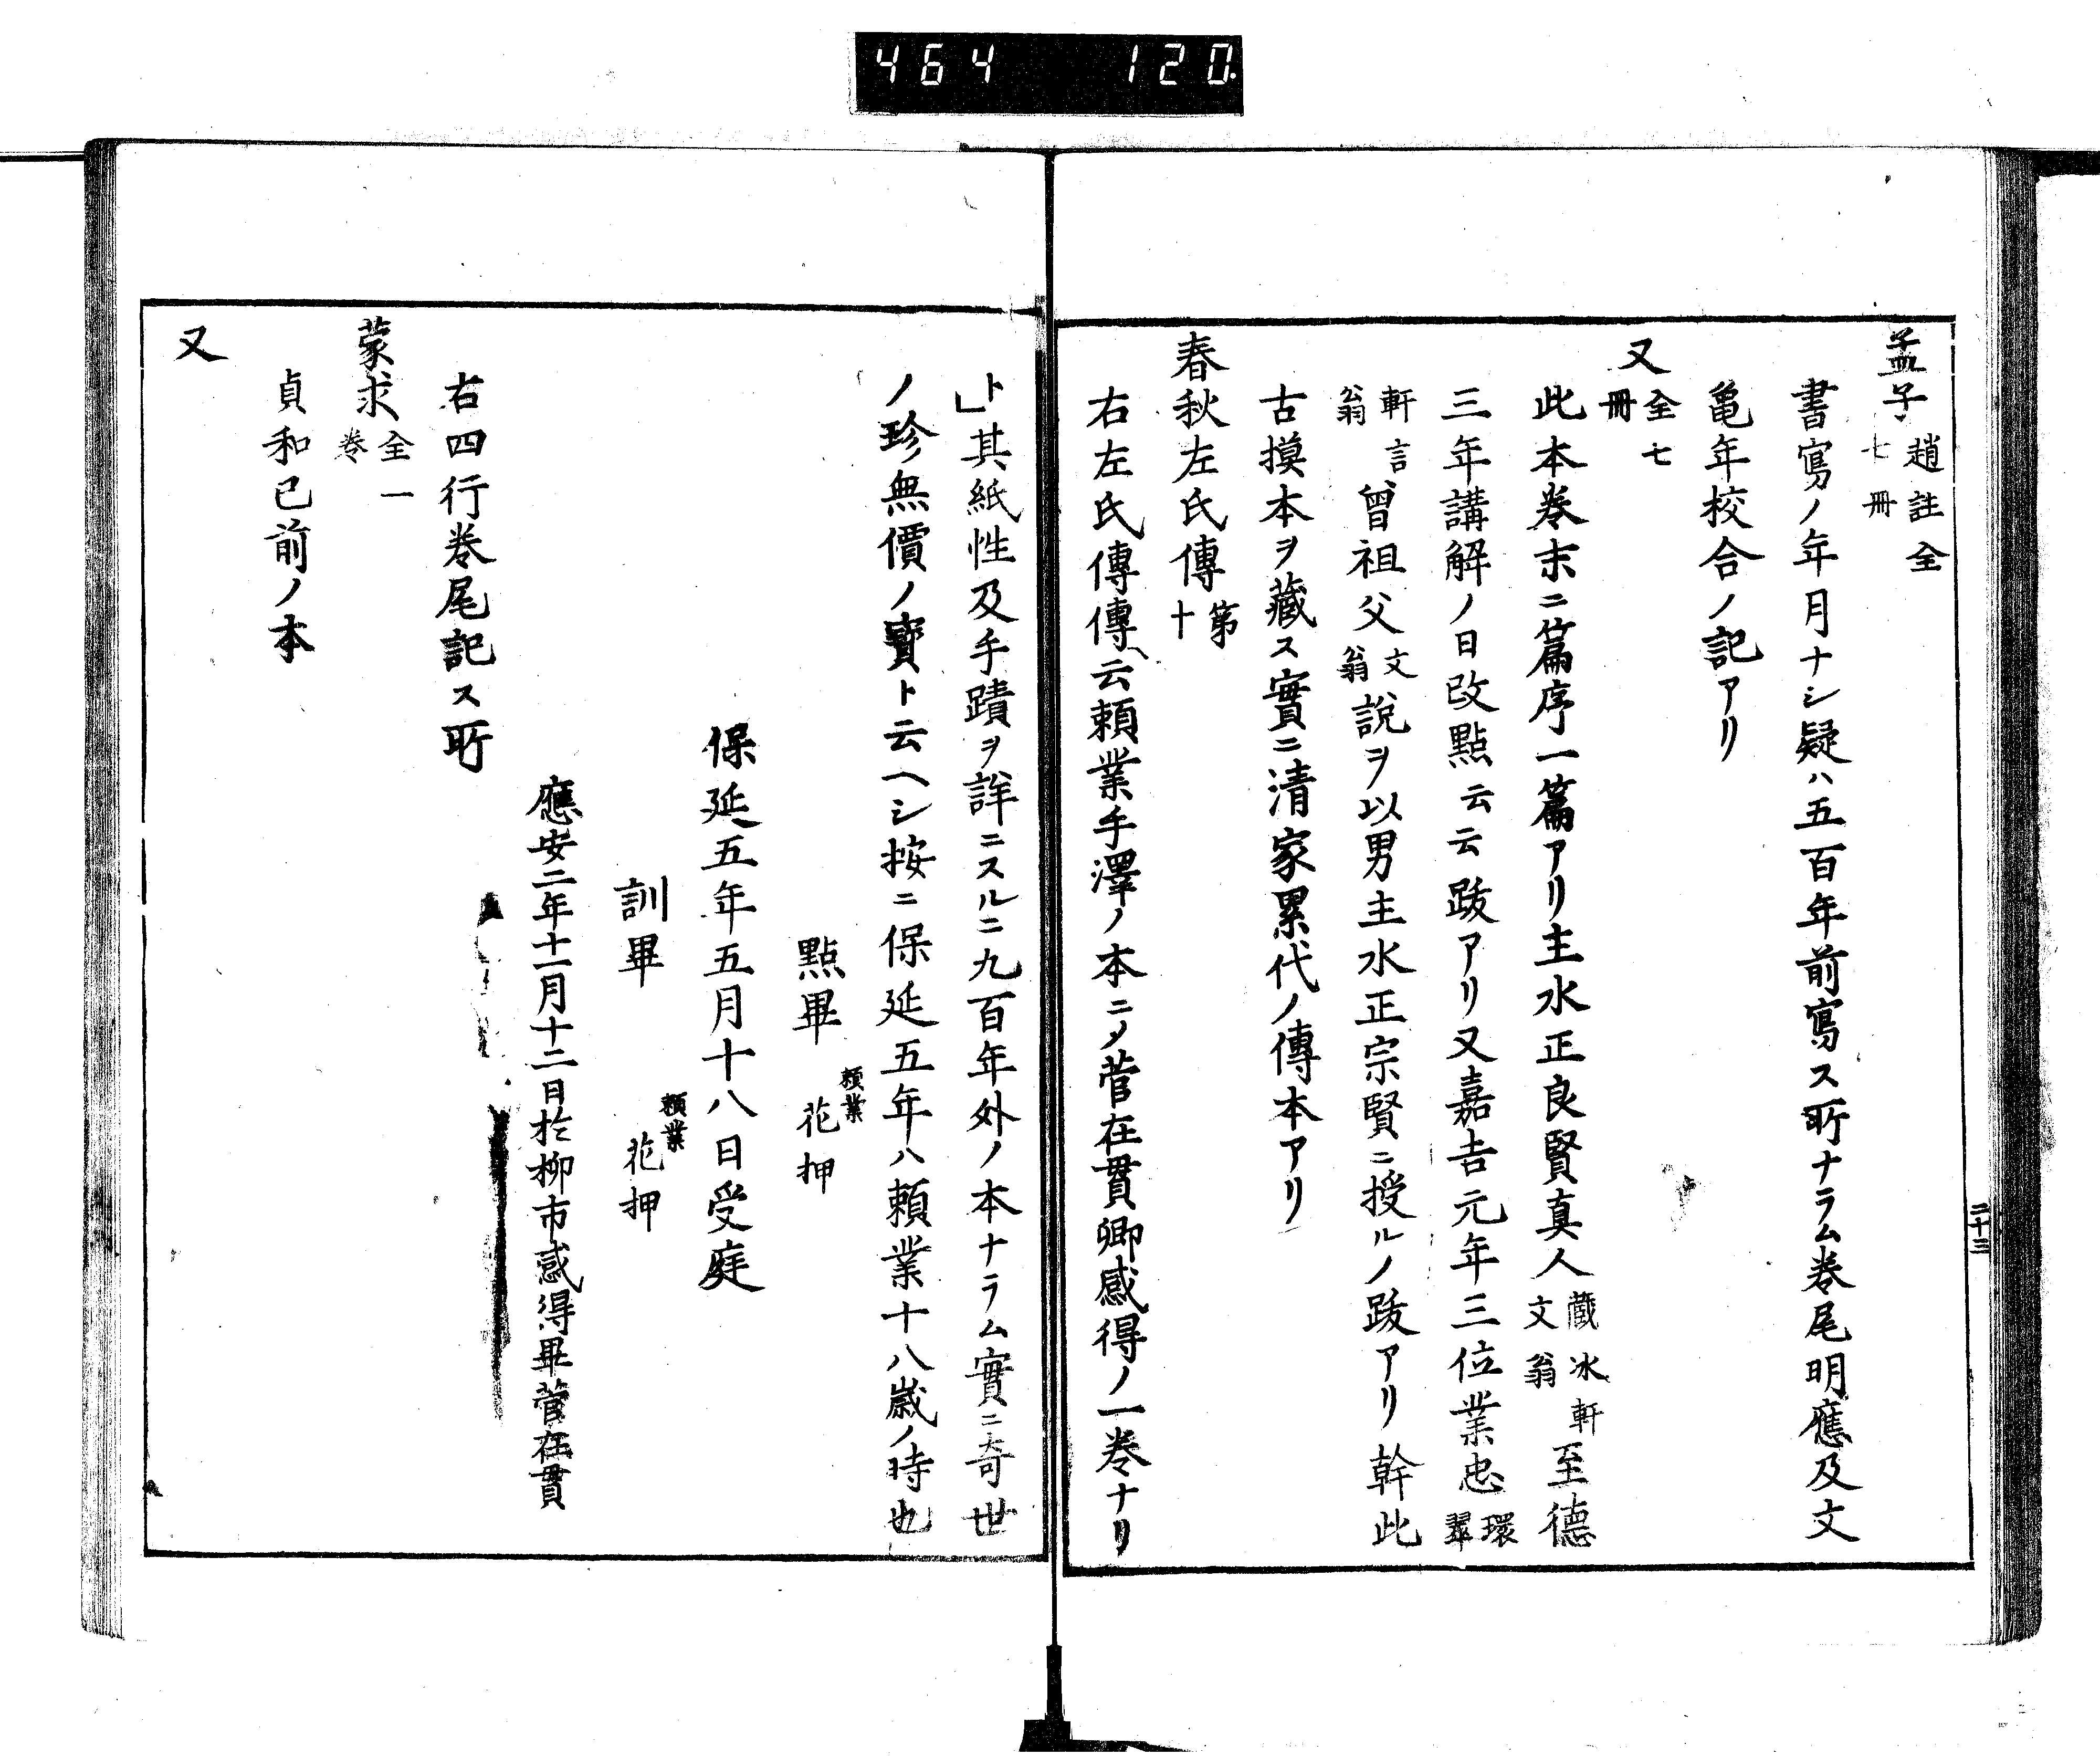 464 120.
孟子 趙註全七冊
書寫ノ年月ナシ疑ハ五百年前寫ス所ナラム巻尾明應及文
亀年校合ノ記アリ
又 全七冊
此本巻末ニ篇序一篇アリ主水正良賢真人 蔵氷軒文翁 至德
三年講解ノ日改點云云跋アリ又嘉吉元年三位業忠 環翠
軒翁言 曾祖父 文翁 說ヲ以男主水正宗賢ニ授ルノ跋アリ幹此
古摸本ヲ藏ス實ニ清家累代ノ傳本アリ
春秋左氏傳 第十
右左氏傳傳云頼業手澤ノ本ニ〆菅在貫卿感得ノ一巻ナリ
二十三
ト其紙性及手蹟ヲ詳ニスルニ九百年外ノ本ナラム實ニ奇世
ノ珍無價ノ寶ト云ヘシ按ニ保延五年ハ頼業十八歳ノ時也
點畢 頼業 花押
保延五年五月十八日受庭
訓畢 頼業 花押
應安二年十一月十二日於柳市感得畢菅在貫
右四行巻尾記ス所
蒙求 全一巻
貞和已前ノ本
又